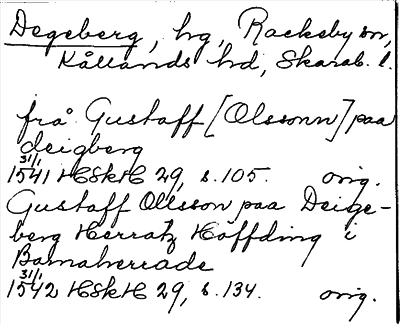 Degeberg, hg, Racksby sn,
Kållands hd, Skarab. l.
frå Gustaff [Olssonn] paa
deigberg
31/1
1541 HSkH 29, s. 105. orig.
Gustaff Ollsson paa Deige-
berg Herratz Höffding i
Barnaherrade
31/1
1542 HSkH 29, s. 134. orig.